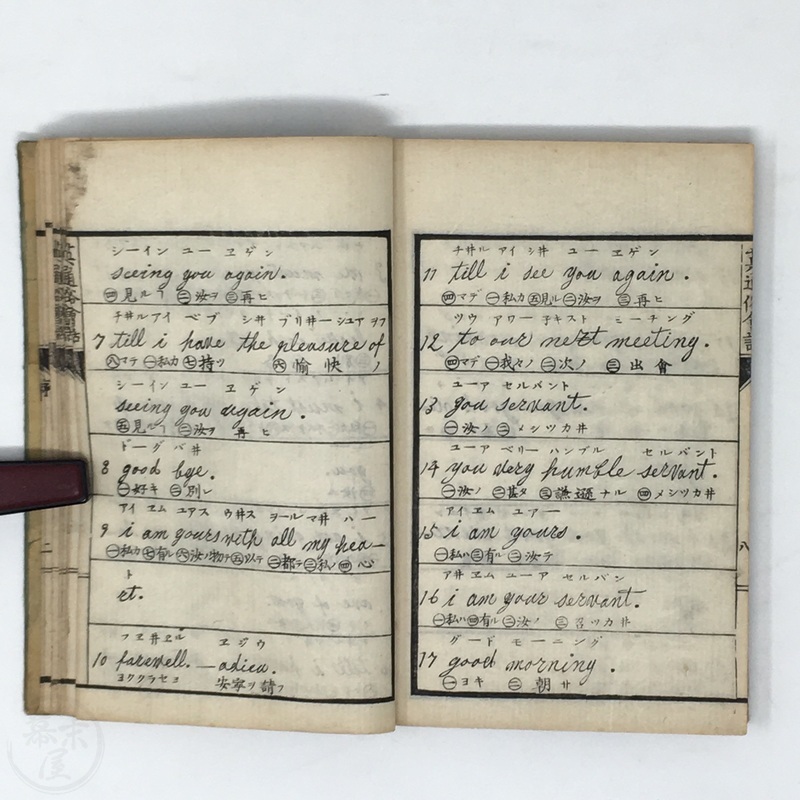 シーイン ユー ヱゲン
seeing you again.
㊃見ル㋣ ㊁汝ヲ ㊂再ヒ
チ井ル アイ ベブ シ井 ブリ井ー シユア ヲフ
7 till i have the pleasure of
㊇マテ ㊀私カ ㊆持ツ ㊅愉快ノ
シーイン ユー ヱゲン
seeing you again.
㊄見ル㋣ ㊂汝ヲ 再ヒ
ドーグ バ井
8 good bye.
㊀好キ ㊁別レ
アイ ヱム ユアス ウ井ス ヲール マ井 ハー
9 i am yours with all my hea—
㊀私ハ ㊆有ル ㊅汝ノ物テ ㊄以テ ㊁都テ ㊂私ノ ㊃心
ト
rt.
フヱ井ヱル ヱジウ
10 farewell. — adieu.
ヨククラセヨ 安寧ヲ請フ
チ井ル アイ シ井 ユー ヱゲン
11 till i see you again.
㊃マデ ㊀私カ ㊄見ル ㊁汝ヲ ㊂再ヒ
ツウ アワー子キスト ミーチング
12 to our next meeting.
㊃マデ ㊀我々ノ ㊁次ノ ㊂出會
ユーア セルバント
13 you servant.
㊀汝ノ ㊁メシツカ井
ユーア ベリー ハンブル セルバント
14 you very humble servant.
㊀汝ノ ㊁甚タ ㊂謙遜ナル ㊃メシツカ井
アイ ヱム ユアー
15 i am yours.
㊀私ハ ㊂有ル ㊁汝テ
ア井 ヱム ユーア セルバン
16 i am your servant.
㊀私ハ ㊃有ル ㊁汝ノ ㊂召ツカ井
グード モーニング
17 good morning.
㊀ヨキ ㊁朝サ
八